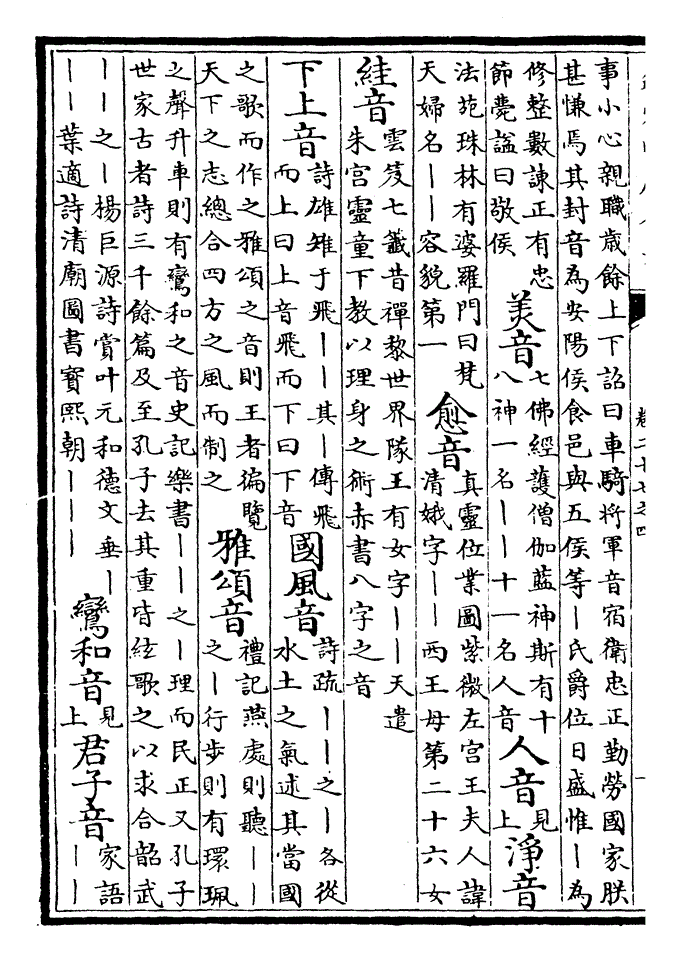 卷二十七之四
事小心親職歲餘上下詔曰車騎將軍音宿衛忠正勤勞國家朕
甚慊焉其封音為安陽侯食邑與五侯等丨氏爵位日盛惟丨為
修整數諫正有忠
節薨諡曰敬侯
美音
七佛經護僧伽藍神斯有十
八神一名丨丨十一名人音
人音
見
上
淨音
法苑珠林有婆羅門曰梵
天婦名丨丨容貌第一
愈音
真靈位業圖紫微左宮王夫人諱
清娥字丨丨西王母第二十六女
絓音
雲笈七籤昔禪黎世界隊王有女字丨丨天遣
朱宮靈童下教以理身之術赤書八字之音
下上音
詩雄雉于飛丨丨其丨傳飛
而上曰上音飛而下曰下音
國風音
詩疏丨丨之丨各從
水土之氣述其當國
之歌而作之雅頌之音則王者徧覽
天下之志總合四方之風而制之
雅頌音
禮記燕處則聽丨丨
之丨行步則有環珮
之聲升車則有鸞和之音史記樂書丨丨之丨理而民正又孔子
世家古者詩三千餘篇及至孔子去其重皆絃歌之以求合韶武
丨丨之丨楊巨源詩賞叶元和德文垂丨
丨丨葉適詩清廟圖書寶熙朝丨丨丨
鸞和音
見
上
君子音
家語
丨丨